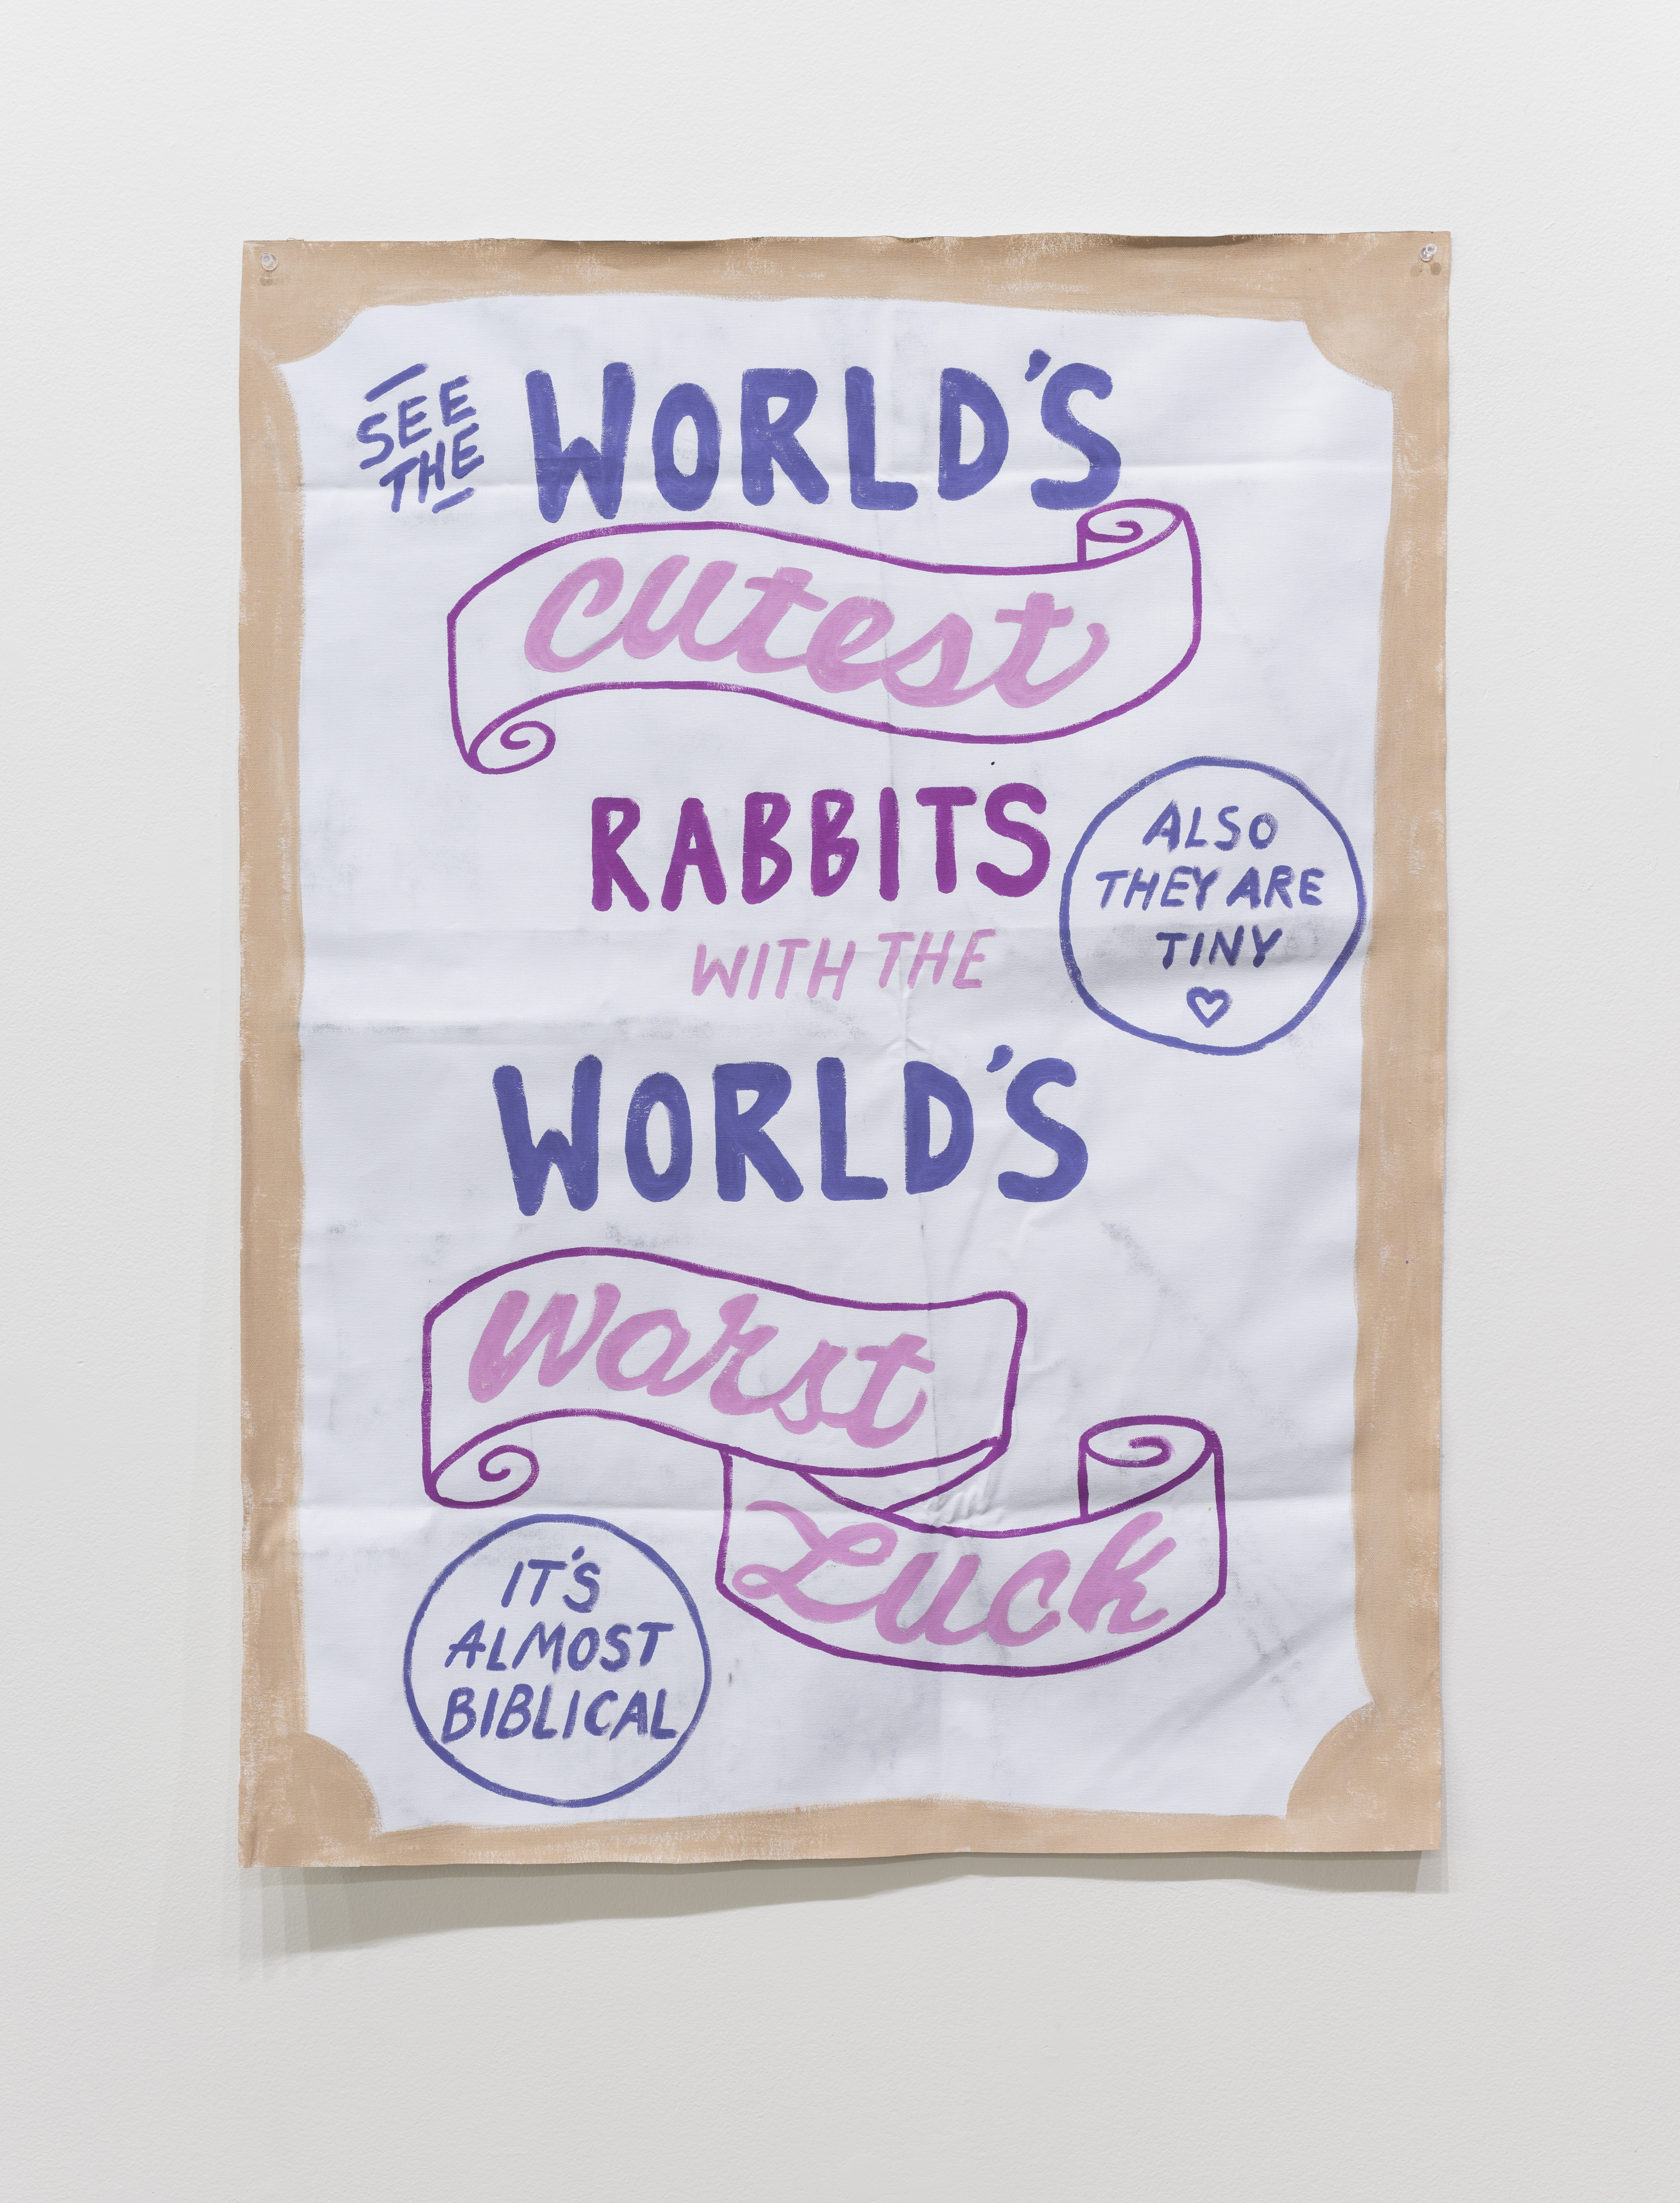 SEE
THE
WORLD'S
cutest
RABBITS
WITH THE
ALSO
THEY ARE
TINY
WORLD'S
Worst
Luck
IT'S
ALMOST
BIBLICAL